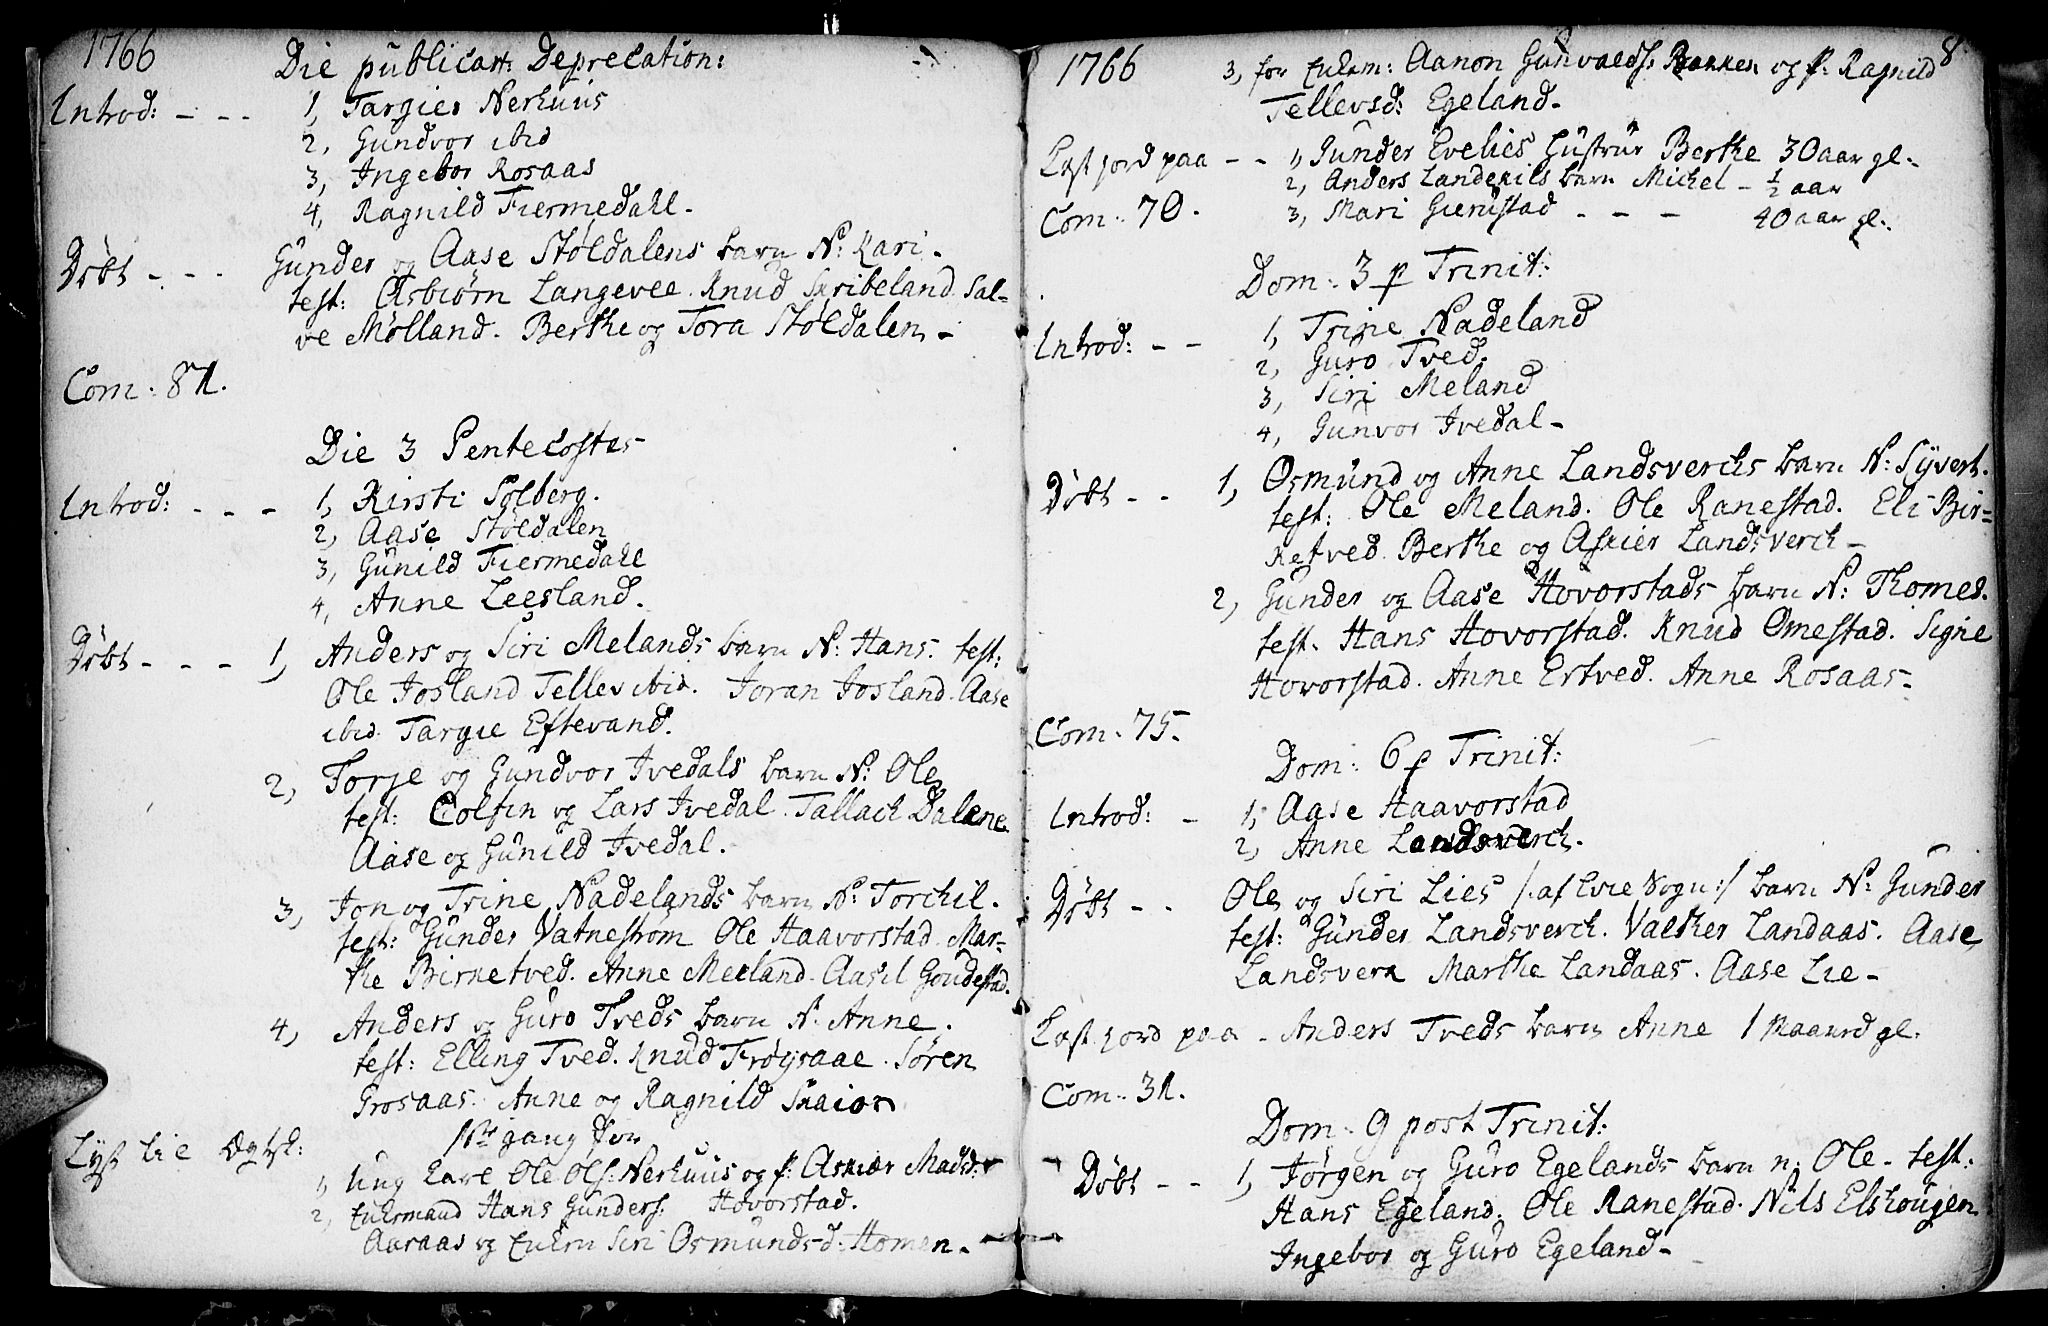 1766
Die publicat: Deprecation:
Introd: - - - 1, Targier Nerhuus
2, Gundvor ibid
3, Ingebor Rosaas
4, Ragnild Fiermedahl -
Døbt - - - Gunder og Aase Støldalens barn N: Kari -
test: Asbiørn Langevee. Knud Skribeland. Sal-
ve Mølland. Berthe og Tora Støldalen -
Com: 81.
Die 3 Pentecostes
Introd: - - - 1, Kirsti Solberg.
2, Aase Støldalen
3, Gunild Fiermedahl
4, Anne Leesland.
Døbt - - - 1, Anders og Siri Melands barn N: Hans. test:
Ole Josland Tellev ibid. Joran Josland. Aase
ibid. Targie Eftevand.
2, Torje og Gundvor Ivedals barn N: Ole
test: Colfin og Lars Ivedal. Tallack Dalene
Aase og Gunild Ivedal.
3, Jon og Trine Nadelands barn N: Torchil.
test: Gunder Vatnestrøm Ole Haavorstad. Mar-
the Birketved. Anne Meeland. Aasil Goudestad.
4, Anders og Guro Tveds barn N. Anne.
test: Elling Tved. Knud Frøysaae. Søren
Grosaas. Anne og Ragnild Skaior
Lyst til Ægtsk: 1ste gang for
1, Ung Karl Ole Ols: Nerhuus og p: Asmær Madsd:
2, Enkemand Hans Gunders: Hovorstad.
Aaraas og Enken Siri Osmundsd: Homen -
1766 8
3, for Enkem: Aanon Gunvalds: Bakken og p: Ragnild
Tellevsd: Egeland -
Kast jord paa - - 1, Gunder Evelies Hustrue Berthe 30 aar gl:
2, Anders Landekils barn Michel - 1/2 aar
Com: 70. 3, Mari Gierustad - - - 40 aar gl:
Dom: 3 p Trinit:
Introd: - - 1, Trine Nadeland
2, Guro Tved.
3, Siri Meland
4, Gunvor Ivedal -
Døbt - - 1, Osmund og Anne Landsverchs barn N: Syvert.
test: Ole Meland. Ole Ranestad. Eli Bir-
ketved. Berthe og Askier Landsverch -
2, Gunder og Aase Hovorstads barn N: Thomes.
test. Hans Hovorstad. Knud Omestad. Signe
Hovorstad. Anne Ertved. Anne Rosaas -
Com: 75.
Dom: 6 p Trinit:
Introd: - 1, Aase Haavorstad
2, Anne Landsverch.
Døbt - - Ole og Siri Lies /: af Evie Sogn :/ barn N: Gunder
test: Gunder Landsverch. Valther Landaas. Aase
Landsverk Marthe Landaas. Aase Lie -
Kast jord paa - Anders Tveds barn Anne 1 Maaned gl.
Com: 31.
Dom: 9 post Trinit:
Døbt - - 1, Jørgen og Guro Egelands barn n: Ole - test:
Hans Egeland. Ole Ranestad. Nils Elshougen
Ingebor og Guro Egeland -